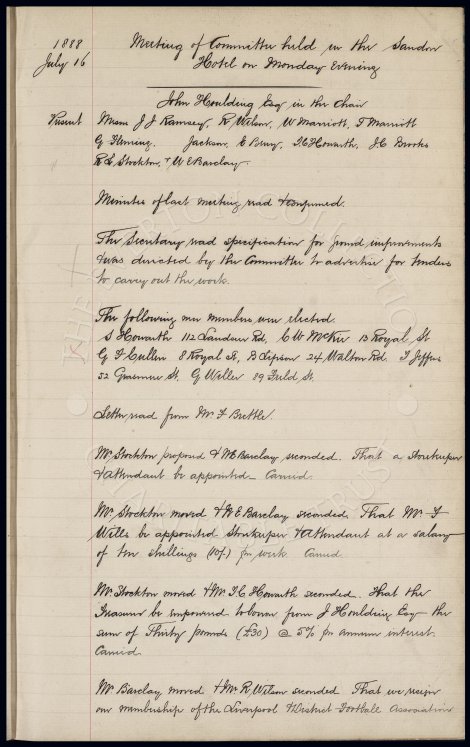 1888
July 16
Meeting of Committee held in the Sandon
Hotel on Monday Evening
John Houlding Esq in the Chair
Present Messrs J J Ramsey, R Wilson, W Marriott, T Marriott
G Fleming, Jackson, E Berry, T C Howarth, J C Brooks
R L Stockton, & W E Barclay.
Minutes of last meeting read & confirmed.
The Secretary read specification for ground improvements
& was directed by the Committee to advertise for tenders
to carry out the work.
The following new members were elected
S Howarth 112 Landseer Rd, C W McKee 13 Royal St
G F Cullen 8 Royal St, B Lipson 24 Walton Rd. T Jeffers
52 Grasmere St. G Weller 89 Field St.
Letter read from Mr F Brettle.
Mr Stockton proposed & W E Barclay seconded. That a Storekeeper
& attendant be appointed Carried.
Mr Stockton moved & W E Barclay seconded That Mr F
Wills be appointed Storekeeper & attendant at a salary
of ten shillings (10/) per week Carried
Mr Stockton moved & Mr T C Howarth seconded. That the
Treasurer be empowered to borrow from J Houlding Esq the
sum of Thirty pounds (£30) @ 5% per annum interest.
Carried.
Mr Barclay moved & Mr R Wilson seconded That we resign
our membership of the Liverpool & District Football Association
THE EVERTON COLLECTION